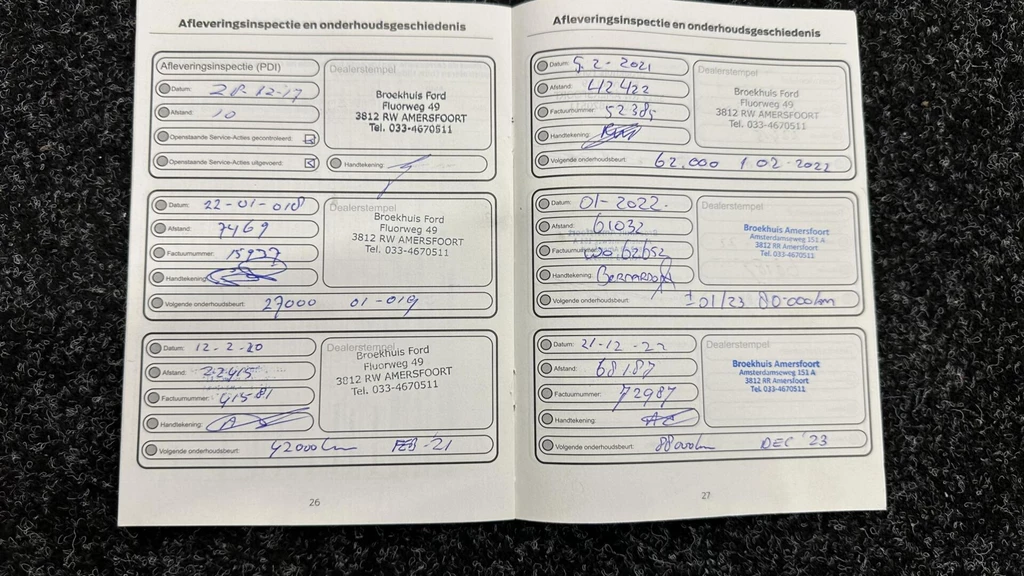 Afleveringsinspectie en onderhoudsgeschiedenis
Afleveringsinspectie (PDI)
Datum: 28-12-17
Afstand: 10
Openstaande Service-Acties gecontroleerd:
Openstaande Service-Acties uitgevoerd:
Dealerstempel
Broekhuis Ford
Fluorweg 49
3812 RW AMERSFOORT
Tel. 033-4670511
Handtekening:
Datum: 22-01-018
Afstand: 7469
Factuurnummer:
Handtekening:
Dealerstempel
Broekhuis Ford
Fluorweg 49
3812 RW AMERSFOORT
Tel. 033-4670511
Volgende onderhoudsbeurt: 27000 01-019
Datum: 12-2-20
Afstand: 22415
Factuurnummer: 41581
Handtekening:
Dealerstempel
Broekhuis Ford
Fluorweg 49
3812 RW AMERSFOORT
Tel. 033-4670511
Volgende onderhoudsbeurt: 42000km FEB '21
26
Afleveringsinspectie en onderhoudsgeschiedenis
Datum: 5-2-2021
Afstand: 42422
Factuurnummer: 52385
Handtekening:
Dealerstempel
Broekhuis Ford
Fluorweg 49
3812 RW AMERSFOORT
Tel. 033-4670511
Volgende onderhoudsbeurt: 62.000 1-02-2022
Datum: 01-2022.
Afstand: 61032
Factuurnummer: 62652
Handtekening: BERNARDO
Dealerstempel
Broekhuis Amersfoort
Amsterdamseweg 151 A
3812 RR Amersfoort
Tel. 033-4670511
Volgende onderhoudsbeurt: ± 01/23 80.000km
Datum: 21-12-22
Afstand: 68187
Factuurnummer: 72987
Handtekening:
Dealerstempel
Broekhuis Amersfoort
Amsterdamseweg 151 A
3812 RR Amersfoort
Tel. 033-4670511
Volgende onderhoudsbeurt: 88000km DEC '23
27